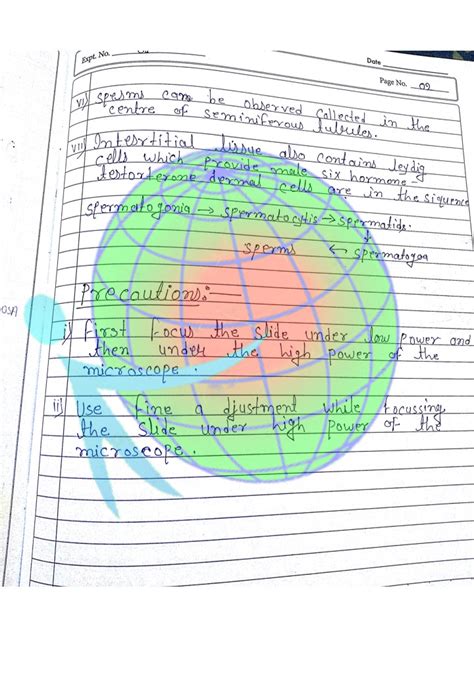 Expt. No.
Date
Page No. 09
vi) sperms can be observed collected in the
centre of seminiferous tubules.
viii) Intesrtitial tissue also contains leydig
cells which provide male six hormone -
testorterone dermal cells are in the siquence
spermatogonia → spermatocytis → spermatide.
↓
sperms ← spermatozoa
Precautions:-
i) First focus the slide under low power and
then under the high power of the
microscope.
ii) Use fine adjustment while focussing
the slide under high power of the
microscope.